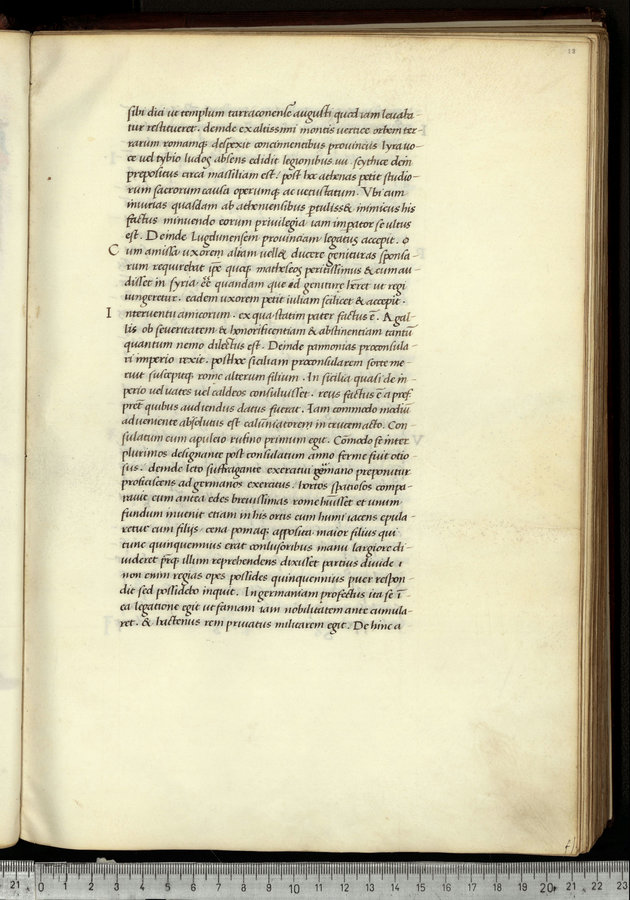 18
sibi dici ut templum tarraconense augusti quod iam levaba-
tur restitueret. deinde ex altissimi montis vertice orbem ter
rarum romamq; despexit concinnentibus provinciis lyra uo-
ce vel tybio ludos absens edidit legionibus .iiii. scythice dein
prepositus circa massiliam est. post hoc athenas petit studio-
rum sacrorum causa operumq; ac vetustatum. Ubi cum
iniurias quasdam ab atheniensibus ptuliss& inimicus his
factus minuendo eorum privilegia iam impator se ultus
est. Deinde Lugdunensem provinciam legatus accepit. C
um amissa uxorem aliam uell& ducere genituras sponsa-
rum requirebat ipe quoq; matheseos peritissimus & cum au-
disset in syria ēē quandam que id geniture hēret ut regi
iungeretur. eadem uxorem petit iuliam scilicet & accepit.
Interventu amicorum. ex qua statim pater factus ē. A gal-
lis ob severitatem & honorificentiam & abstinentiam tantū
quantum nemo dilectus est. Deinde pannonias proconsula-
ri imperio rexit. posthoc siciliam proconsularem sorte me-
ruit suscepitq; rome alterum filium. In sicilia quasi de im-
perio vel vates vel caldeos consuluisset. reus factus ē a pref
pret quibus audiendus datus fuerat. Iam commodo mediu
adveniente absolutus est calūniatorem in crucem acto. Con-
sulatum cum apuleio rufino primum egit. Cōmodo se inter
plurimos designante post consulatum anno ferme fuit otio
sus. deinde leto suffragante exercitui germano preponitur
proficiscens ad germanos exercitus. hortos spatiosos compa-
ravit cum antea edes brevissimas rome hūisset et unum
fundum invenit etiam in his ortis cum humi iacens epula-
retur cum filiis cena pomaq; apposita maior filius qui
tunc quinquennius erat conlusoribus manu largiore di-
videret prq; illum reprehendens dixisset partius divide
non enim regias opes possides quinquennius puer respon-
dit sed possidebo inquit. In germaniam profectus ita se ī
ea legatione egit ut famam iam nobilitatem ante cumula-
ret. & hactenus rem privatus militarem egit. Dehinc a